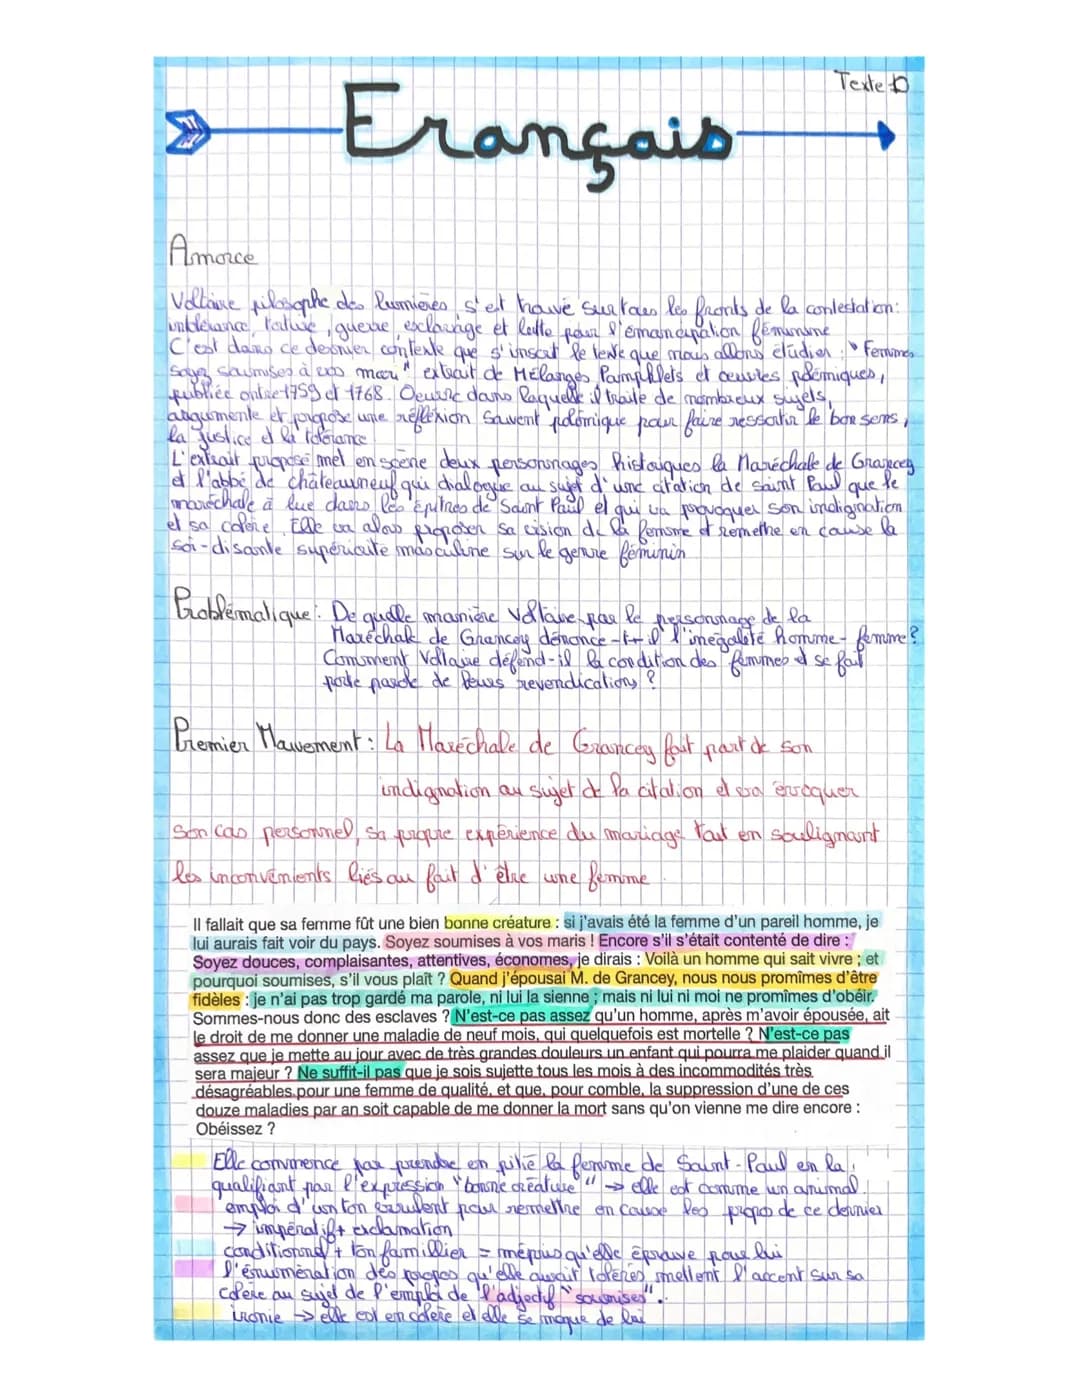 Texte D
Français
Amorce
Voltaire pilosophe des lumières, s'est trouvé sur tous les fronts de la contestation:
intolérance, torture, guerre, esclavage et lutte pour l'émancipation féminine
C'est dans ce dernier contexte que s'inscrit le texte que nous allons étudier : "Femmes
soyez soumises à vos mari" extrait de Mélanges, Pamphlets et oeuvres polémiques,
publiée entre 1759 et 1768. Oeuvre dans laquelle il traite de nombreux sujets,
argumente et propose une réflexion souvent polémique pour faire ressortir le bon sens,
la justice et la tolérance
L'extrait proposé met en scène deux personnages historiques la Maréchale de Grancey
et l'abbé de châteauneuf qui dialogue au sujet d'une citation de saint Paul que le
maréchale à lue dans les Epitres de Saint Paul et qui va provoquer son indignation
et sa colère. Elle va alors proposer sa vision de la femme et remettre en cause la
soi-disante supériorité masculine sur le genre féminin
Problématique : De quelle manière Voltaire par le personnage de la
Maréchale de Grancey dénonce-t-il l'inégalité homme-femme?
Comment Voltaire défend-il la condition des femmes et se fait
porte parole de leurs revendications ?
Premier Mouvement : La Maréchale de Grancey fait part de son
indignation au sujet de la citation et va évoquer
son cas personnel, sa propre expérience du mariage tout en soulignant
les inconvénients liés au fait d'être une femme
Il fallait que sa femme fût une bien bonne créature : si j'avais été la femme d'un pareil homme, je
lui aurais fait voir du pays. Soyez soumises à vos maris ! Encore s'il s'était contenté de dire :
Soyez douces, complaisantes, attentives, économes, je dirais : Voilà un homme qui sait vivre ; et
pourquoi soumises, s'il vous plaît ? Quand j'épousai M. de Grancey, nous nous promîmes d'être
fidèles : je n'ai pas trop gardé ma parole, ni lui la sienne ; mais ni lui ni moi ne promîmes d'obéir.
Sommes-nous donc des esclaves ? N'est-ce pas assez qu'un homme, après m'avoir épousée, ait
le droit de me donner une maladie de neuf mois, qui quelquefois est mortelle ? N'est-ce pas
assez que je mette au jour avec de très grandes douleurs un enfant qui pourra me plaider quand il
sera majeur ? Ne suffit-il pas que je sois sujette tous les mois à des incommodités très
désagréables pour une femme de qualité, et que, pour comble, la suppression d'une de ces
douze maladies par an soit capable de me donner la mort sans qu'on vienne me dire encore :
Obéissez ?
Elle commence par prendre en pitié la femme de Saint-Paul en la
qualifiant par l'expression "bonne créature" → elle est comme un animal.
emploi d'un ton virulent pour remettre en cause les propos de ce dernier
→ impératif + exclamation
conditionnel + ton famillier = mépris qu'elle éprouve pour lui
l'énumération des propos qu'elle aurait tolérés, mettent l'accent sur sa
colère au sujet de l'emploi de l'adjectif "soumises".
ironie → elle est en colère et elle se moque de lui